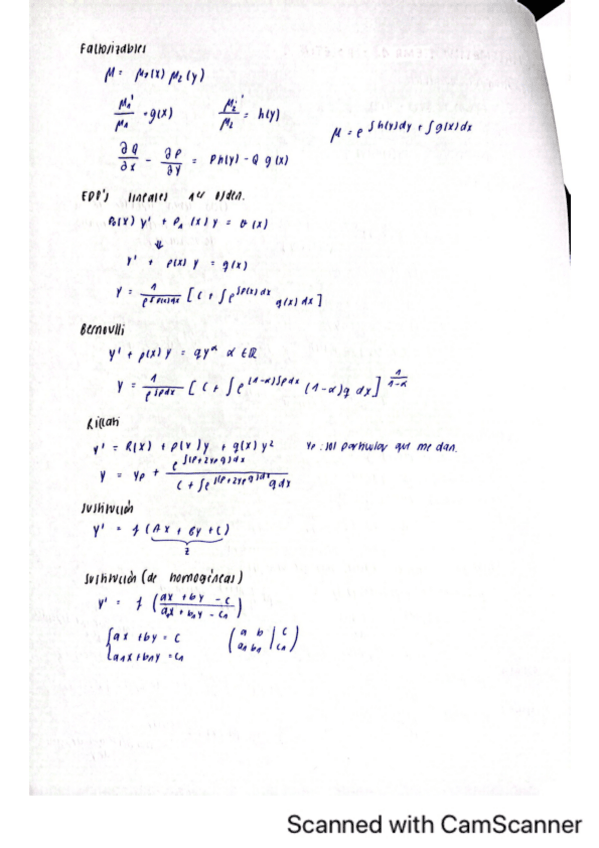 Factorizables
μ = μ₁(x) μ₂(y)
μ₁'/μ₁ = g(x)    μ₂'/μ₂ = h(y)    μ = e^{∫h(y)dy + ∫g(x)dx}
∂Q/∂x - ∂P/∂y = Ph(y) - Q g(x)
EDO's lineales 1er orden.
P₀(x) y' + P₁(x) y = G(x)
⇓
y' + p(x) y = g(x)
y = 1/e^{∫p(x)dx} [C + ∫e^{∫p(x)dx} g(x)dx]
Bernoulli
y' + p(x) y = qy^α  α ∈ ℝ
y = 1/e^{∫pdx} [C + ∫e^{(1-α)∫pdx} (1-α)q dx]^{1/(1-α)}
Riccati
y' = R(x) + p(x)y + q(x)y²    yp: sol particular que me dan.
y = yp + e^{∫(p+2yp q)dx} / (C + ∫e^{∫(p+2yp q)dx} q dx)
Sustitución
y' = f(Ax + By + C)
z
Sustitución (de homogéneas)
y' = f((ax + by - c)/(a₁x + b₁y - c₁))
{ax + by = c    (a b | c)
{a₁x + b₁y = c₁    (a₁ b₁ | c₁)
Scanned with CamScanner